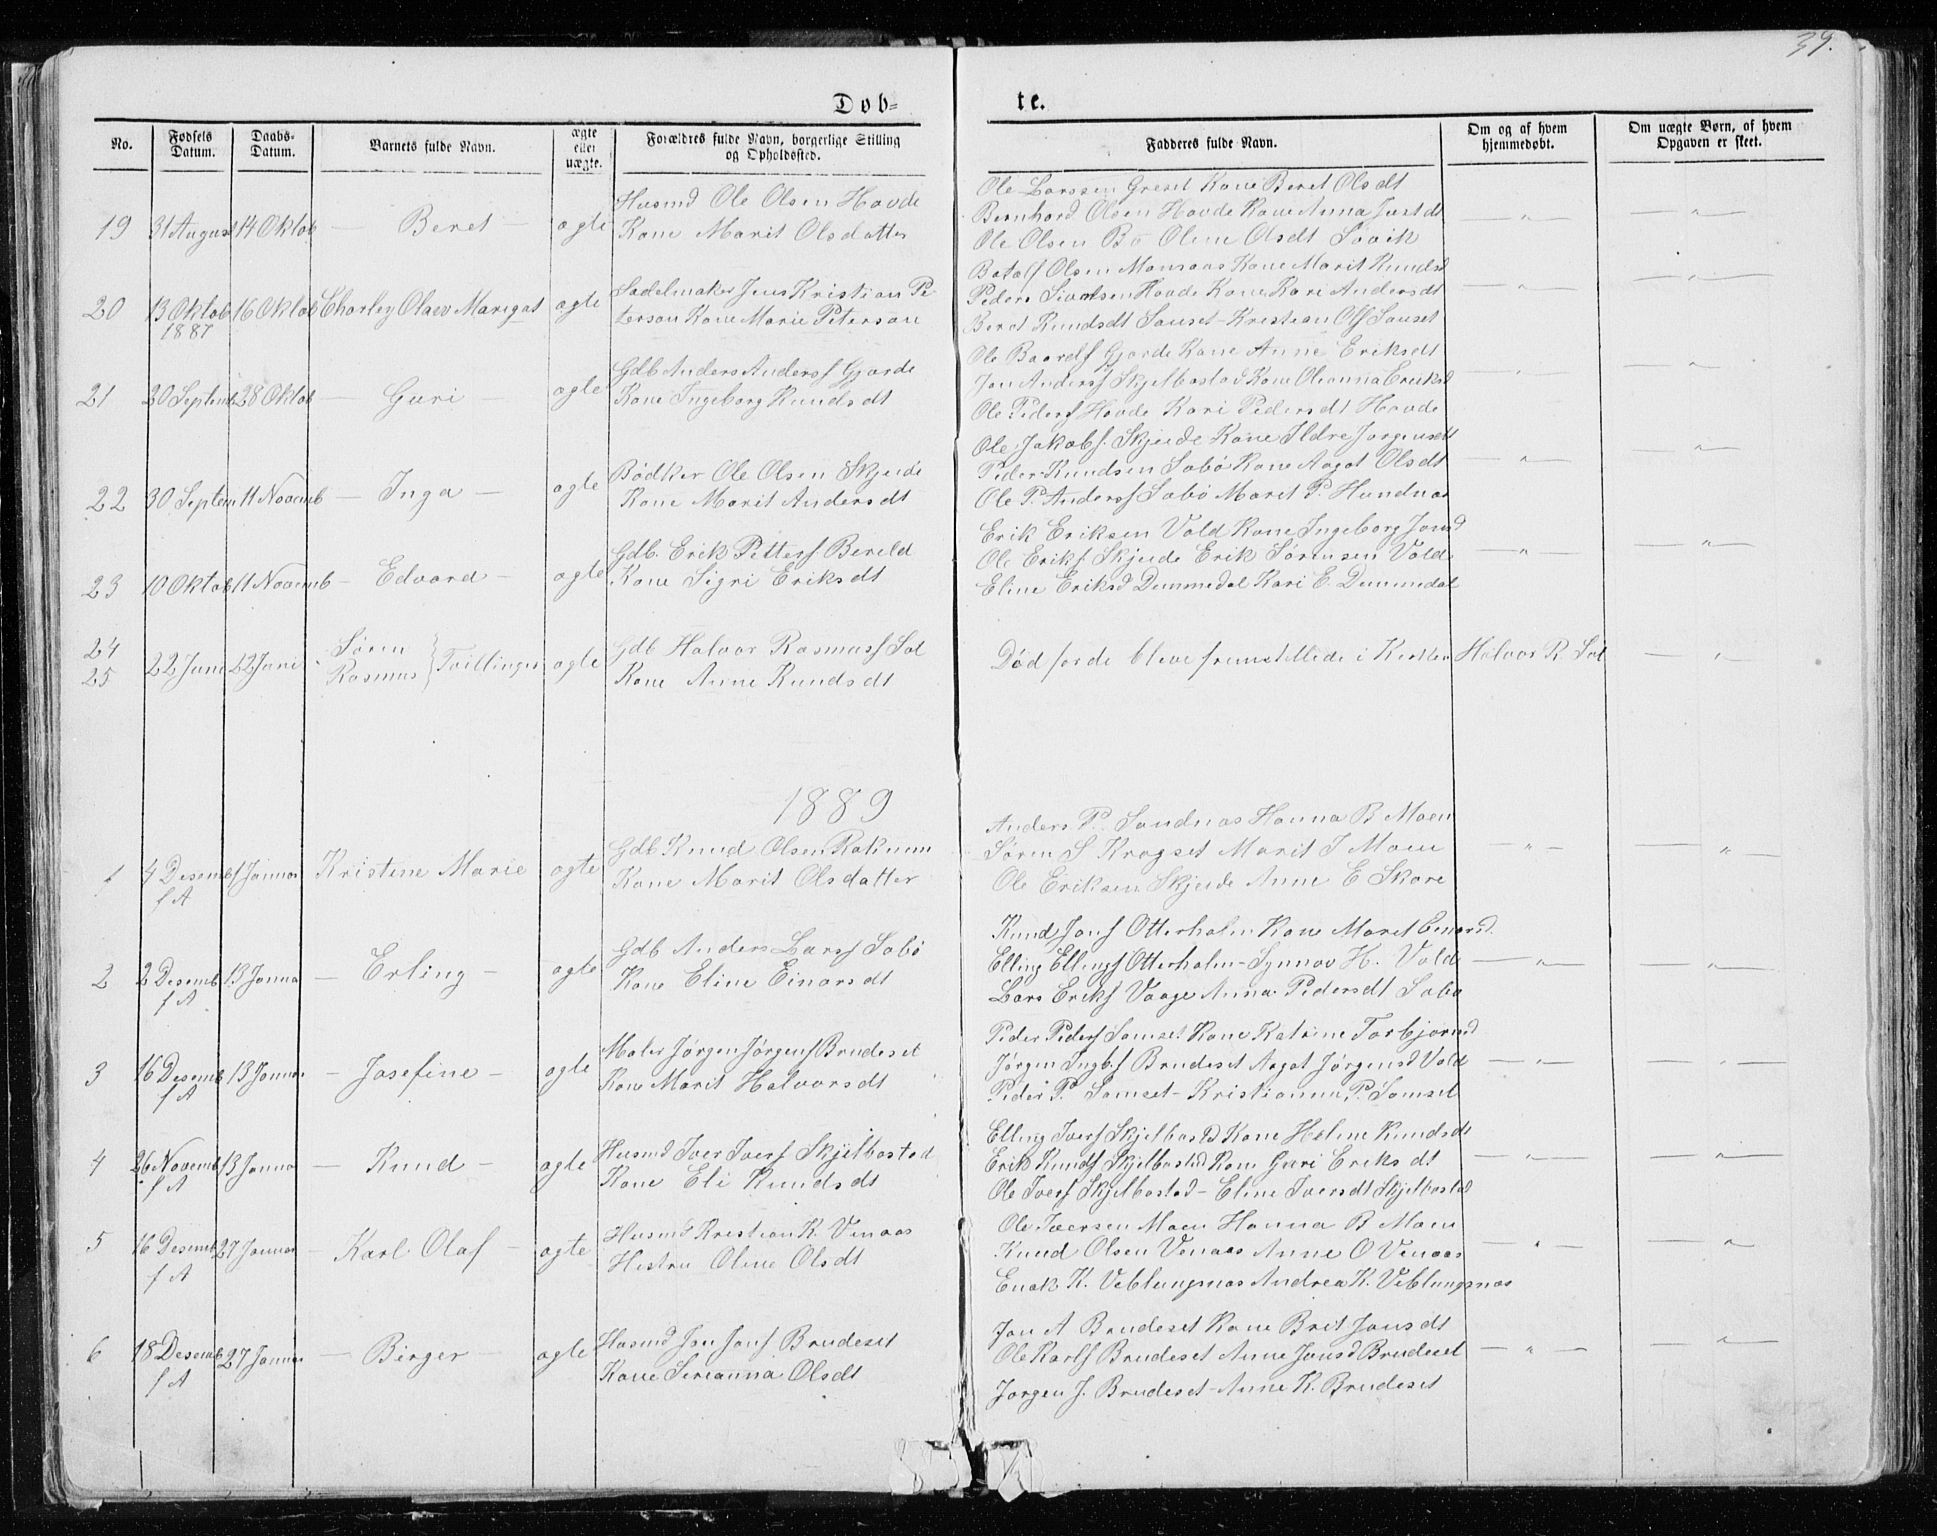 39.
Døb=
te.
No.
Fødsels Datum.
Daabs-Datum.
Barnets fulde Navn.
ægte eller uægte.
Forældres fulde Navn, borgerlige Stilling og Opholdssted.
Faddernes fulde Navn.
Om og af hvem hjemmedøbt.
Om uægte Børn, af hvem Opgaven er skeet.
19 31 August 14 Oktob — Beret — ægte
Husmd Ole Olsen Hovde
Kone Marit Olsdatter
Ole Larssen Greset Kone Beret Olsdt
Bernhard Olsen Hovde Kone Anna Justdt
Ole Olsen Bø Oline Olsdt Søvik
20 13 Oktob 1887 16 Oktob Charley Olaev Marigat ægte
Sadelmaker Jens Kristian Pe-
terson Kone Marie Peterson
Botolf Olsen Monsaas Kone Marit Knudsd
Peder Sivertsen Hovde Kone Kari Andersdt
Beret Knudsdt Sanset - Kristian Ols Sanset
21 20 Septemb 28 Oktob — Guri — ægte
Gdb Anders Anders Gjørde
Kone Ingeborg Knudsdt
Ole Baards Gjørde Kone Anne Eriksdt
Jon Anders Skjelbostad Kone Oleanna Eriksd
Ole Peders Hovde Kari Pedersdt Hovde
22 30 Septem 11 Novemb — Inga — ægte
Bødker Ole Olsen Skjeide
Kone Marit Andersdt
Ole Jakobs. Skjeide Kone Ildre Jørgensdt
Peder Knudsen Sæbø Kone Aagot Olsdt
Ole P. Anders Sæbø Marit P. Hundnæs
23 10 Oktob 11 Novemb — Edvard — ægte
Gdb. Erik Petters Bereld
Kone Sigri Eriksdt
Erik Eriksen Vold Kone Ingeborg Jonsd
Ole Eriks Skjeide Erik Sørensen Vold
Eline Eriksd Dummedal Kari E. Dummedal
24
25 22 Juni 22 Juni Søren
Rasmus } Tvillinger ægte
Gdb Halvor Rasmuss Sol
Kone Anne Knudsdt
Død førde bleve fremstillede i Kirken Halvor R. Sol
1889
1 4 Desemb f A 1 Januar Kristine Marie ægte
Gdb Knud Olsen Raknem
Kone Marit Olsdatter
Anders P. Sandnæs Hanna B Moen
Søren S Krogset Marit I Moen
Ole Eriksen Skjeide Anne E Skare
2 2 Desemb f A 13 Janua — Erling — ægte
Gdb Anders Larss Sæbø
Kone Eline Einarsdt
Knud Jons Otterholm Kone Marit Einarsd.
Elling Ellings Otterholm - Synnøv H. Vold
Lars Eriks Vaage Anna Pedersdt Sæbø
3 16 Desemb f A 13 Januar — Josefine — ægte
Maler Jørgen Jørgens Brudeset
Kone Marit Halvorsdt
Peder Peders Samset Kone Katrine Torbjørnsd
Jørgen Ingbs Brudeset Aagot Jørgensd Vold
Peder P. Samset - Kristianna P. Samset
4 26 Novemb f A 13 Janua — Knud — ægte
Husmd Iver Ivers Skjelbostad
Kone Eli Knudsdt
Elling Ivers Skjelbostad Kone Heline Knudsdt
Erik Knuds Skjelbostad Kone Guri Eriksdt
Ole Ivers Skjelbostad - Eline Iversdt Skjelbostad
5 16 Desemb f A 27 Januar — Karl Olaf — ægte
Husmd Kristian K. Venaas
Hustru Oline Olsdt
Ole Iversen Moen Hanna B Moen
Knud Olsen Venaas Anne O Venaas
Enok K. Veblungsnæs Andrea K. Veblungsnæs
6 18 Desemb f A 27 Januar — Birger — ægte
Husmd Jon Jons Brudeset
Kone Serianna Olsdt
Jon A Brudeset Kone Brit Jonsdt
Ole Karls Brudeset Anne Jonsd Brudeset
Jørgen J. Brudeset - Anne K. Brudeset